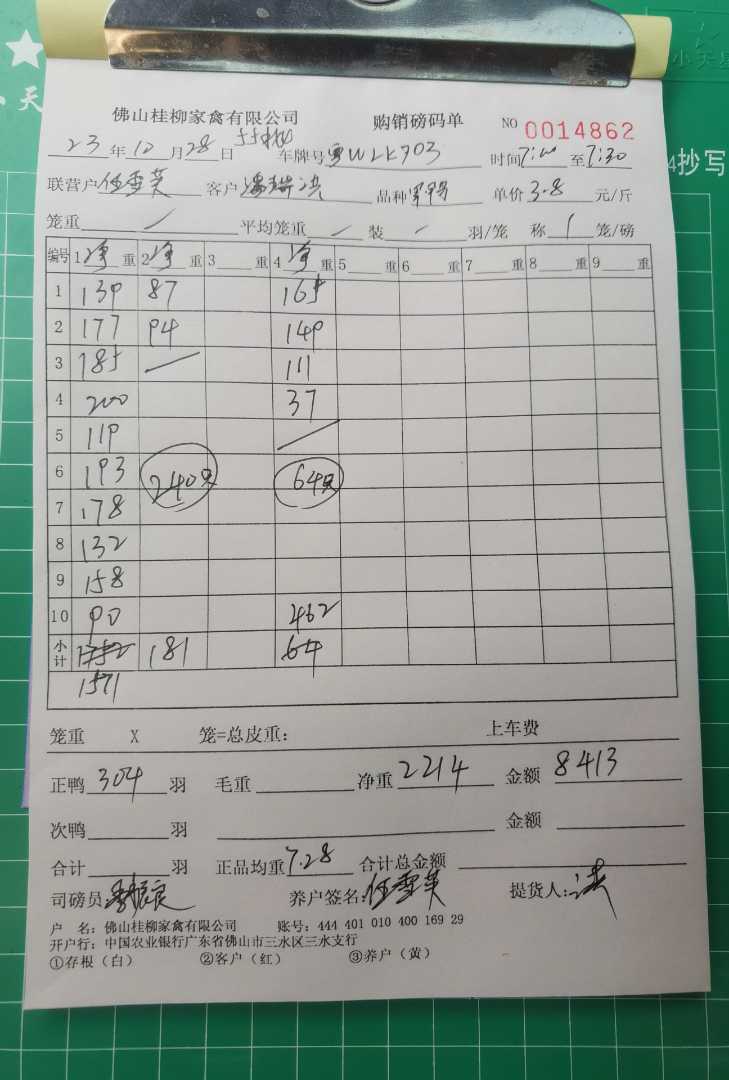 小天
小天星
4抄写
佛山桂柳家禽有限公司 购销磅码单 NO 0014862
23年12月28日 车牌号粤WLK703 时间7:00至7:30
联营户任雪英 客户 品种 单价3.8元/斤
笼重 / 平均笼重 / 装 / 羽/笼 称 1 笼/磅
编号 1净重 2净重 3 重 4净重 5 重 6 重 7 重 8 重 9 重
1 139 87 165
2 177 94 149
3 185 / 111
4 200 37
5 119 /
6 193 240只 64只
7 178
8 132
9 158
10 90 462
小计 1752 181 64
1571
笼重 X 笼=总皮重: 上车费
正鸭 304 羽 毛重 净重 2214 金额 8413
次鸭 羽 金额
合计 羽 正品均重 7.28 合计总金额
司磅员: 养户签名:任雪英 提货人:
户 名:佛山桂柳家禽有限公司 账号:444 401 010 400 169 29
开户行:中国农业银行广东省佛山市三水区三水支行
①存根(白) ②客户(红) ③养户(黄)